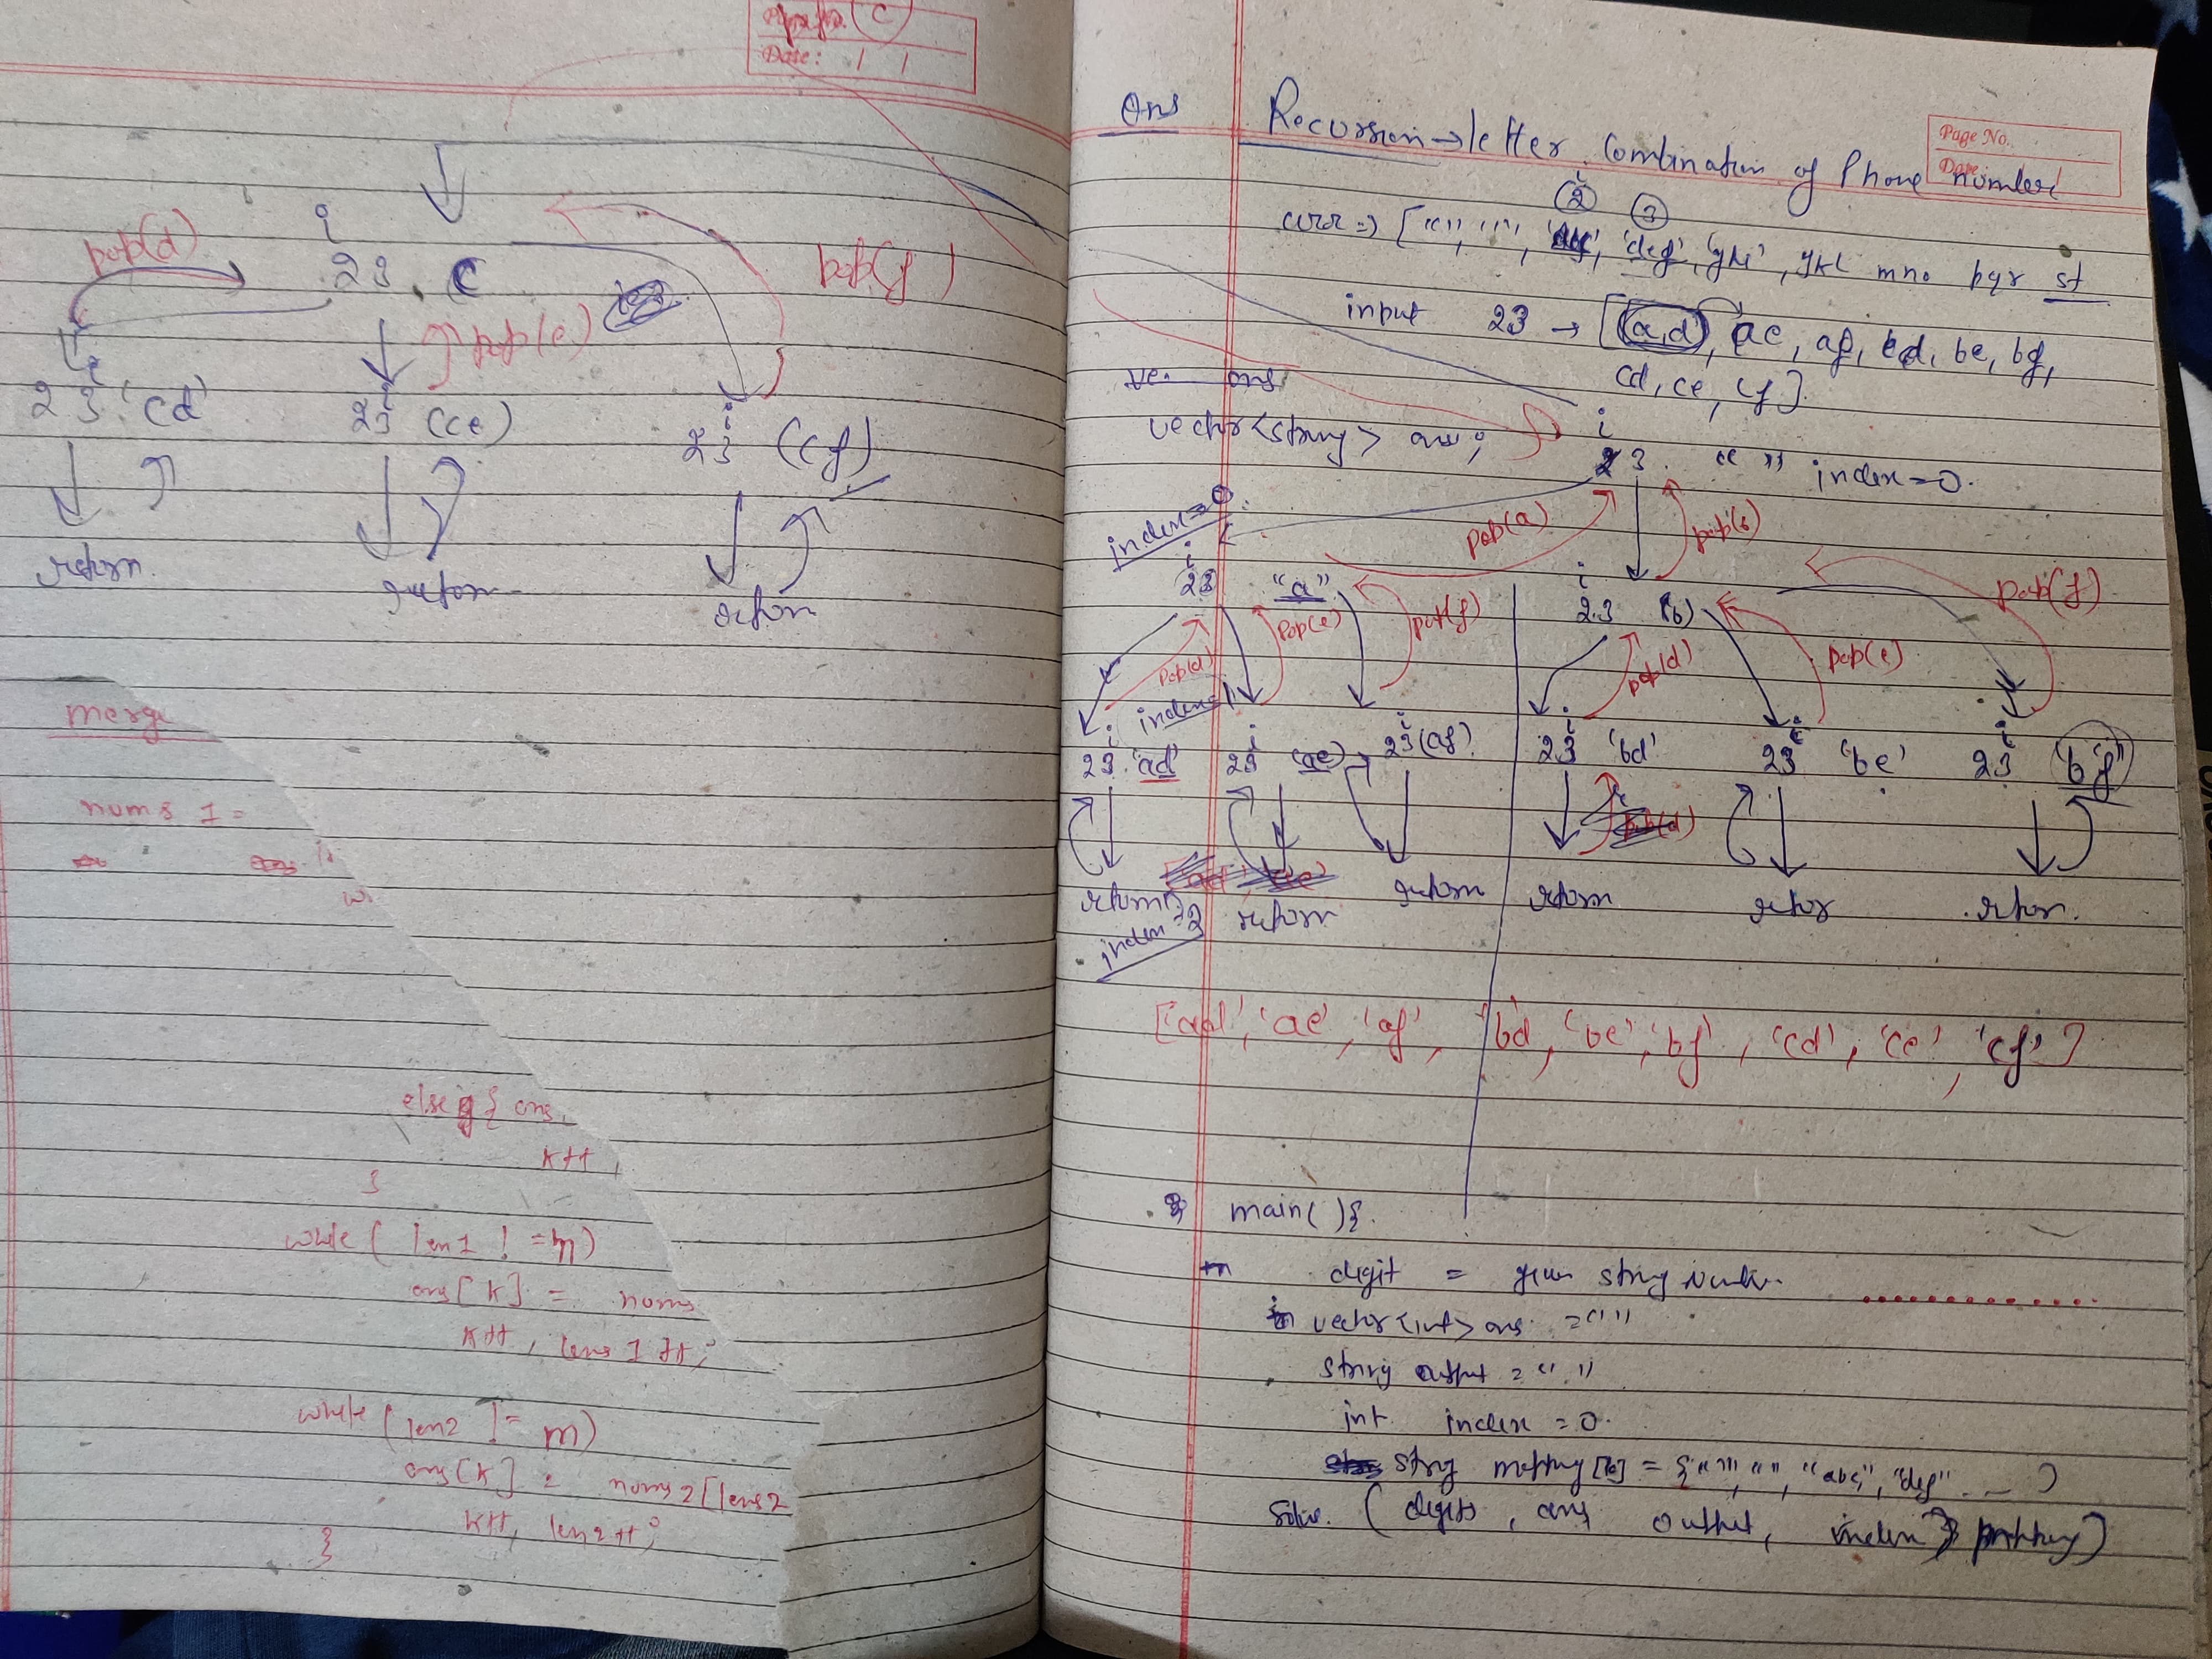 Page No. C
Date: / /
i
pop(d)
23. C
pop(f)
pop(e)
23 'cd'
23 (ce)
i
23 (cf)
return.
return
return
merge
nums 1 =
else { ans
k++,
}
while ( len1 ! = n)
ans[k] = nums
k++, lens1++;
while (len2 != m)
ans[k] = nums2[lens2
k++, len2++;
}
Page No.
Date
Ans Recursion → letter Combination of Phone number
i
② ③
arr => ["", "", 'def', 'ghi', jkl mno pqr st
input 23 → [(a,d), ae, af, bd, be, bf,
cd, ce, cf].
vector<string> ans;
i
23. " " index=0.
index=0.
pop(a) pop(b)
i
23 "a"
i
23 (b)
pop(f)
pop(d) pop(e) pop(f) pop(d) pop(e)
index=1
i i i i i i
23 'ad' 23 (ae) 23 (af) 23 'bd' 23 'be' 23 'bf'
return return return return retur return.
index=2
['ad', 'ae', 'af', 'bd, 'be', 'bf', 'cd', 'ce', 'cf']
main( ){.
digit = given string number.
vector<int> ans = ""
string output = " "
int index = 0.
string mapping[10] = {"", "", "abc", "def" - - }
Solve. (digits, ans output, index, mapping)